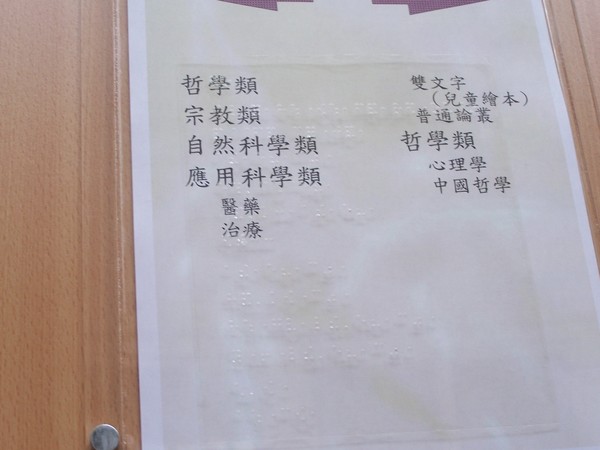 哲學類
宗教類
自然科學類
應用科學類
醫藥
治療
雙文字
（兒童繪本）
普通論叢
哲學類
心理學
中國哲學